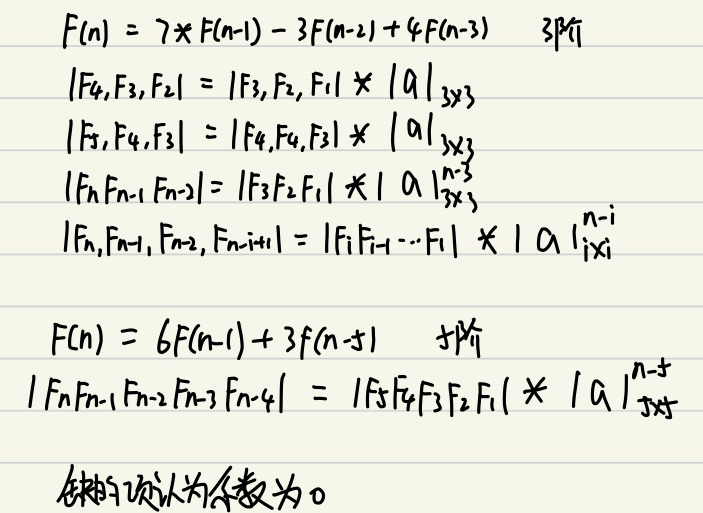 F(n) = 7* F(n-1) - 3F(n-2) + 4F(n-3) 3阶
|F4, F3, F2| = |F3, F2, F1| * |a|3x3
|F5, F4, F3| = |F4, F4, F3| * |a|3x3
|Fn Fn-1 Fn-2| = |F3 F2 F1| * |a|3x3^n-3
|Fn, Fn-1, Fn-2, Fn-i+1| = |Fi Fi-1 ... F1| * |a|ixi^n-i
F(n) = 6F(n-1) + 3f(n-5) 5阶
|Fn Fn-1 Fn-2 Fn-3 Fn-4| = |F5 F4 F3 F2 F1| * |a|5x5^n-5
缺的项认为系数为0